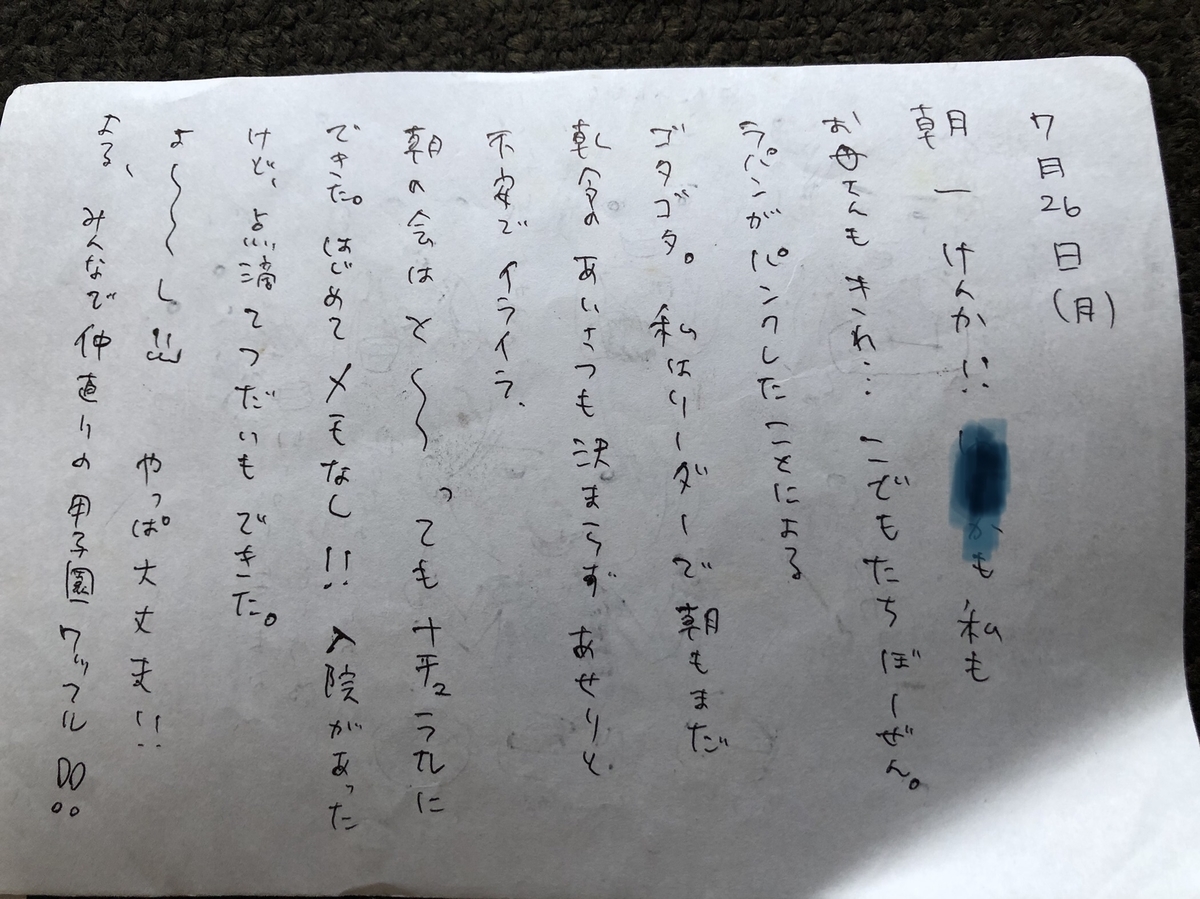 7月26日(月)
朝一けんか!! も私も
お母さんもきれ… こでもたちぼーぜん。
ラパンがパンクしたことによる
ゴタゴタ。私はリーダーで朝もまだ
朝令のあいさつも決まらずあせりと
不安でイライラ、
朝の会はと〜〜っても
できた。はじめてメモなし!! 入院があった
けど、点滴てつだいもできた。
よ〜〜〜し やっぱ大丈夫!!
よる、みんなで仲直りの甲子園ワッフル